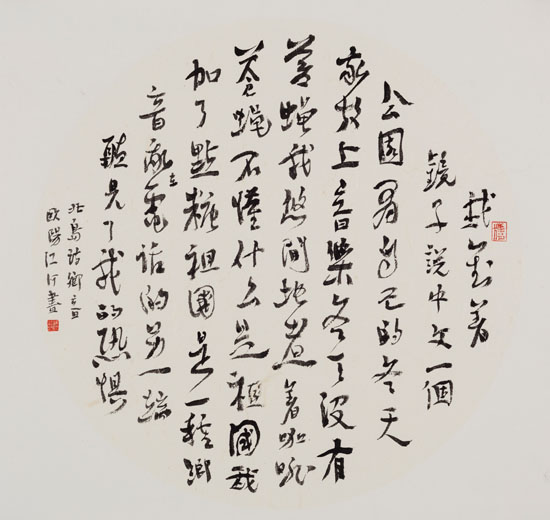 我對着
鏡子説中文一個
公園有自己的冬天
我放上音樂冬天没有
苍蝇我悠閒地煮着咖啡
苍蝇不懂什么是祖國我
加了點糖祖國是一種鄉
音我在電話的另一端
聽見了我的恐惧
北島詩鄉音
欧陽江河書